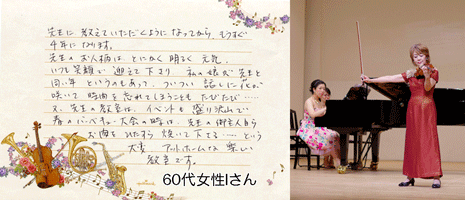 先生に教えていただくようになってから、もうすぐ
4年になります。
先生のお人柄は、とにかく明るく元気。
いつも笑顔で迎えて下さり、私の娘が先生と
同い年というのもあって、ついつい話に花が
咲いて時間を忘れてしまうこともたびたび……
又、先生の教室は、イベントも盛り沢山で
春のバーベキュー大会の時は、先生の御主人自ら
お肉をひたすら焼いて下さる……という
大変アットホームな楽しい
教室です。
60代女性Iさん